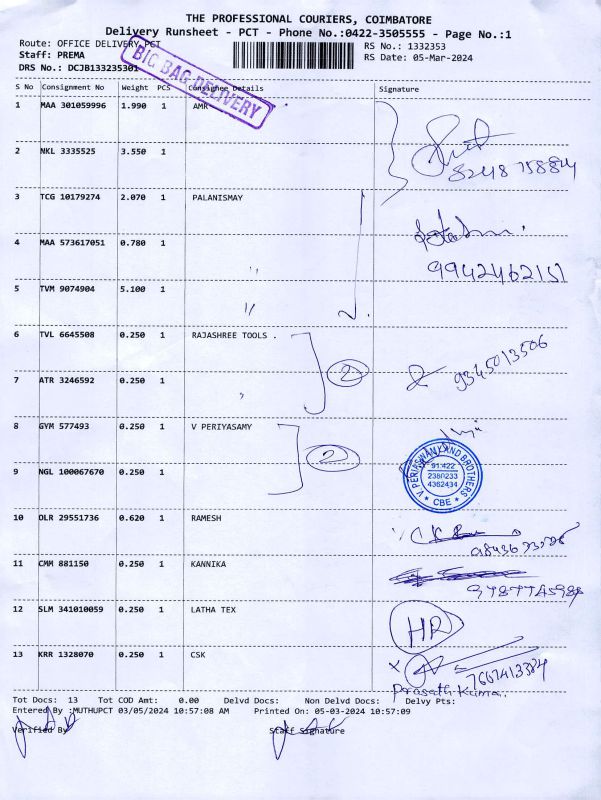 THE PROFESSIONAL COURIERS, COIMBATORE
Delivery Runsheet - PCT - Phone No.:0422-3505555 - Page No.:1
Route: OFFICE DELIVERY PCT
RS No.: 1332353
Staff: PREMA
RS Date: 05-Mar-2024
DRS No.: DCJB133235301
BIG BAG DELIVERY
S No Consignment No Weight PCS Consignee Details Signature
1 MAA 301059996 1.990 1 AMR
2 NKL 3335525 3.550 1
8248 75884
3 TCG 10179274 2.070 1 PALANISMAY
4 MAA 573617051 0.780 1 "
9942462151
5 TVM 9074904 5.100 1 "
6 TVL 6645508 0.250 1 RAJASHREE TOOLS .
2 9345013506
7 ATR 3246592 0.250 1 "
8 GYM 577493 0.250 1 V PERIYASAMY
2
V PERIASWAMY AND BROTHERS
91:422
2380233
4362434
* CBE *
9 NGL 100067670 0.250 1
10 DLR 29551736 0.620 1 RAMESH
11 CMM 881150 0.250 1 KANNIKA
12 SLM 341010059 0.250 1 LATHA TEX
HR
13 KRR 1328070 0.250 1 CSK
7667413384
Tot Docs: 13 Tot COD Amt: 0.00 Delvd Docs: Non Delvd Docs: Delvy Pts:
Entered By :MUTHUPCT 03/05/2024 10:57:08 AM Printed On: 05-03-2024 10:57:09
Verified By Staff Signature